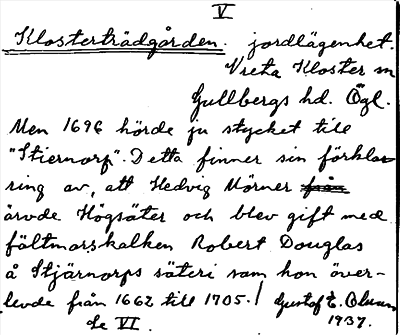 V
Klosterträdgården. jordlägenhet.
Vreta Kloster sn
Gullbergs hd. Ögl.
Men 1696 hörde ju stycket till
"Stiernorp". Detta finner sin förkla-
ring av, att Hedvig Mörner från
ärvde Högsäter och blev gift med
fältmarskalken Robert Douglas
å Stjärnorps säteri som hon över-
levde från 1662 till 1705. / Gustaf E. Olsson
Se VI. 1937.